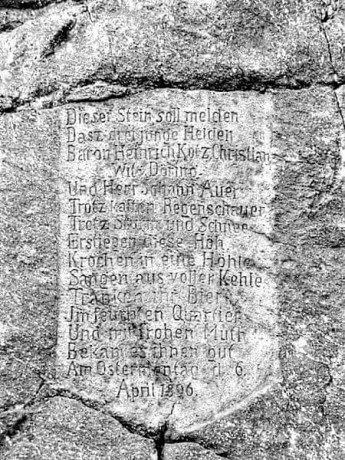 Dieser Stein soll melden
Dasz drei junge Helden
Baron Heinrich Kotz, Christian
Wits. Donno
Und Herr Johann Auer
Trotz kalten Regenschauer
Trotz Sturm und Schnee
Erstiegen diese Höh,
Krochen in eine Höhle
Sangen aus voller Kehle
Tranken ihr Bier
Im feuchten Quartier
Und mit frohen Muth
Bekam es ihnen gut
Am Ostermontag d. 6.
April 1896.